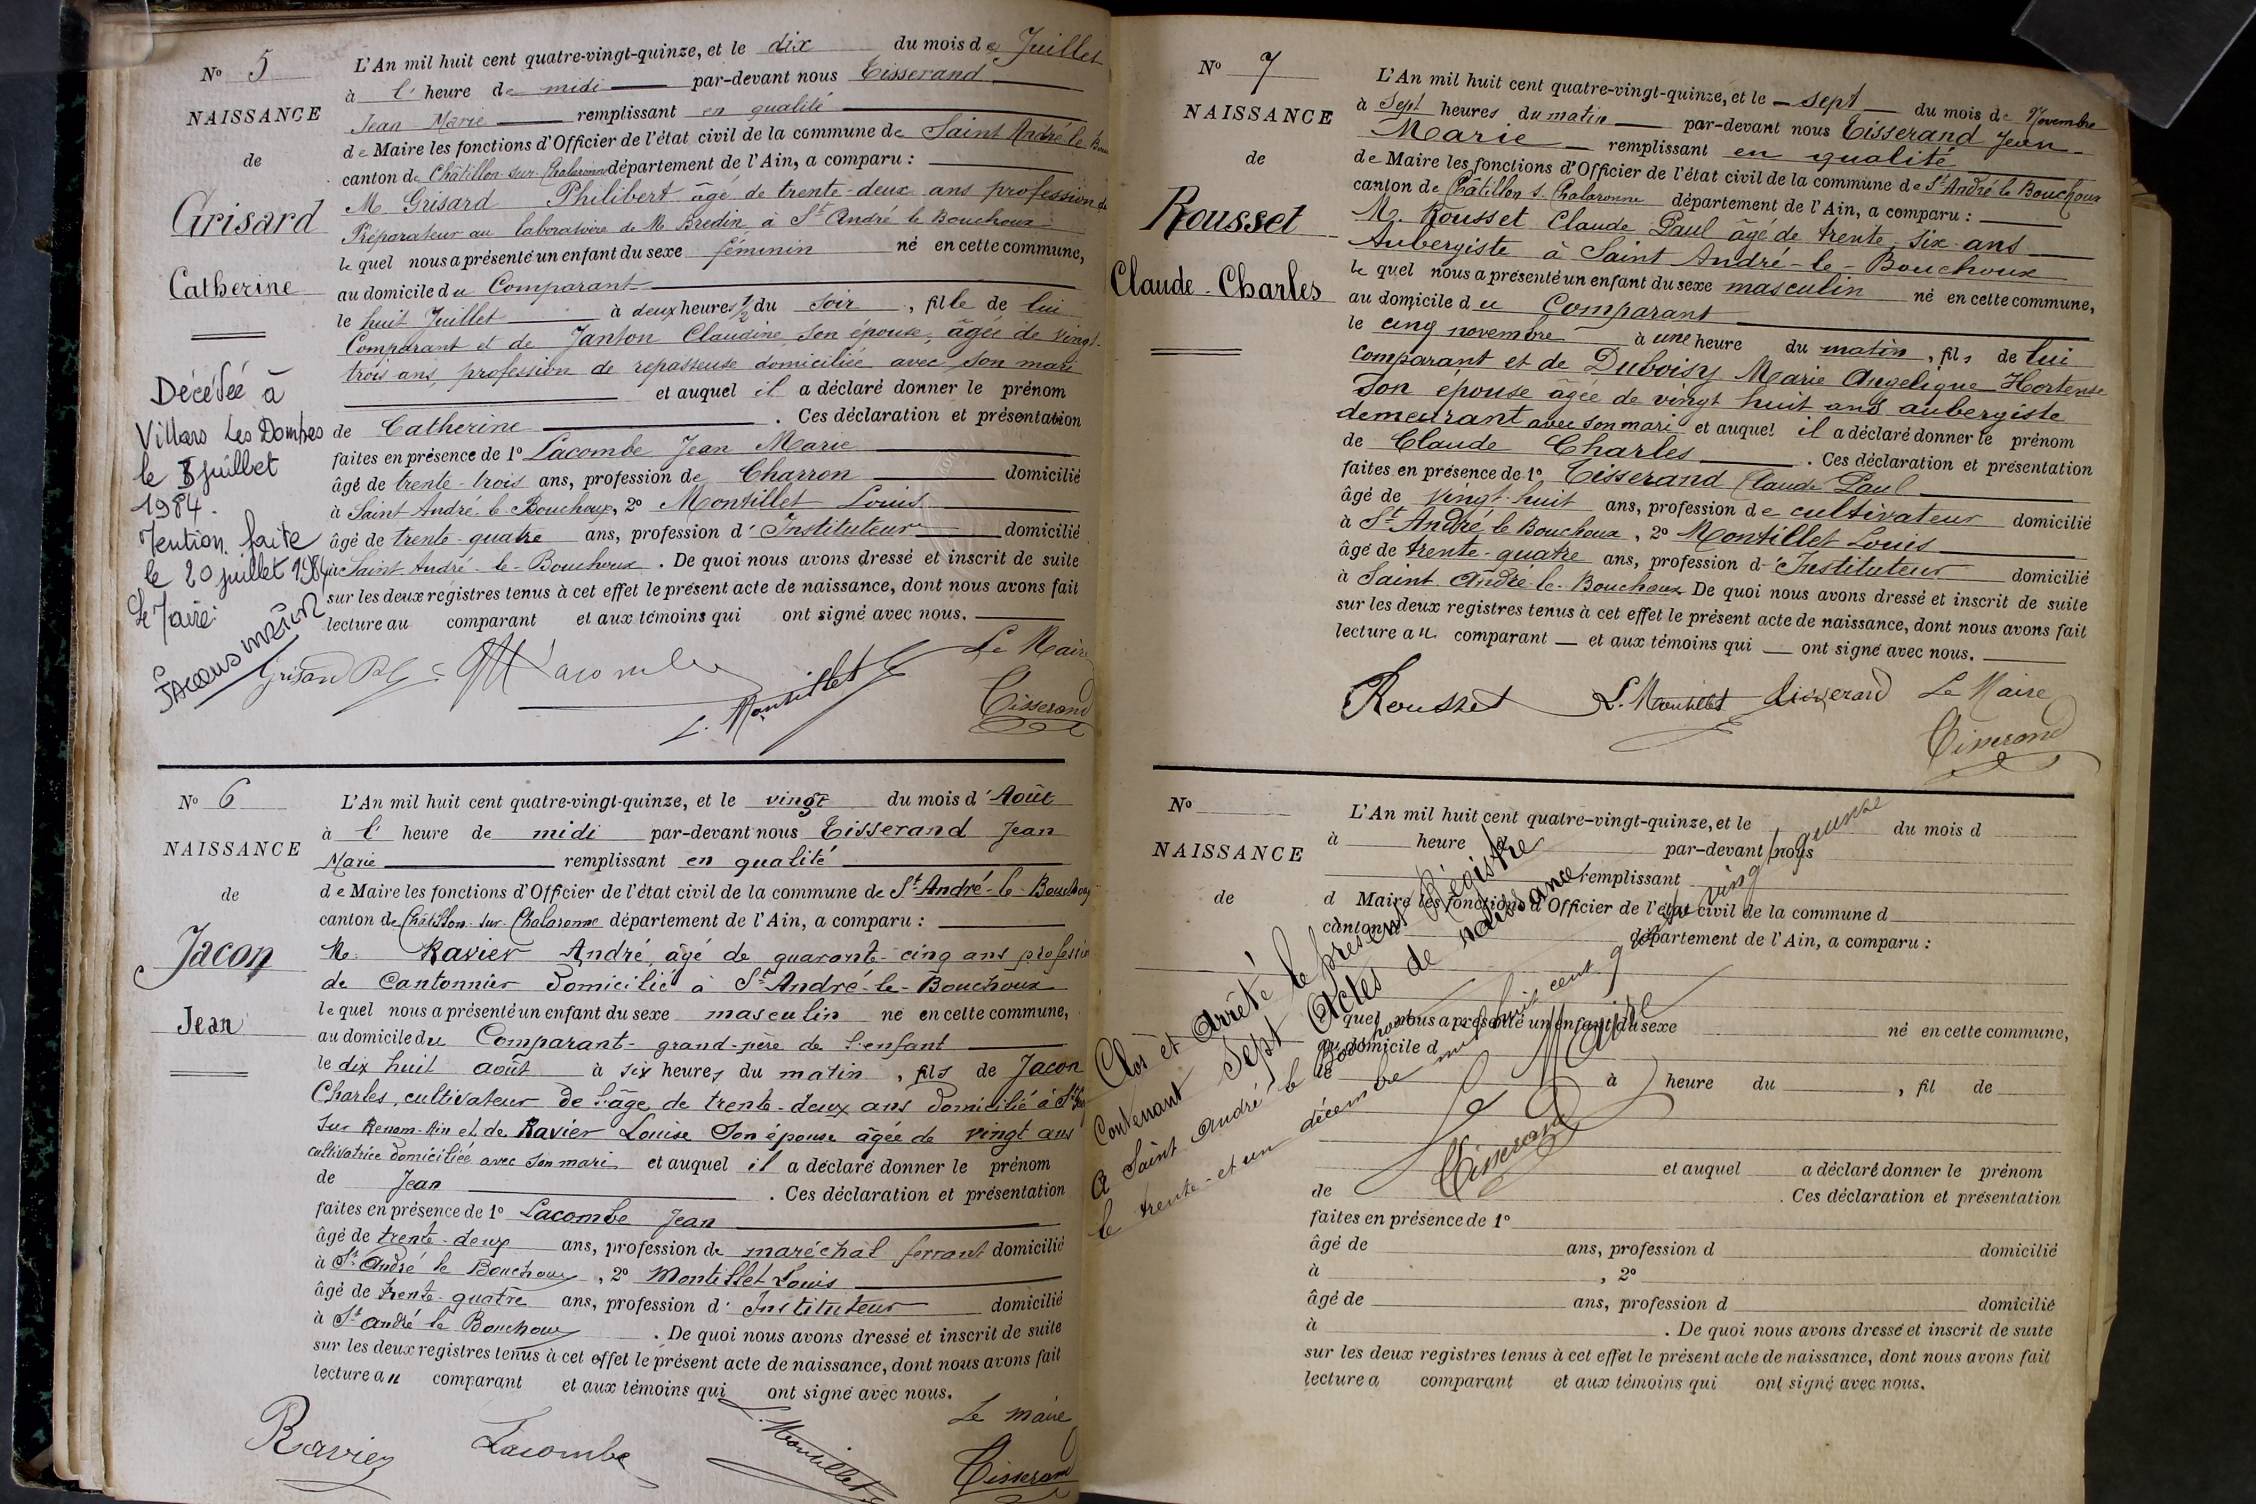 N° 5
NAISSANCE
de
Grisard
Catherine
Décédée à
Villars les Dombes
le 8 juillet
1984.
Mention faite
le 20 juillet 1984
Le Maire:
L'An mil huit cent quatre-vingt-quinze, et le dix du mois de Juillet
à l' heure de midi par-devant nous Tisserand
Jean Marie remplissant en qualité
de Maire les fonctions d'Officier de l'état civil de la commune de Saint André le Bouchoux
canton de Châtillon sur Chalaronne département de l'Ain, a comparu :
M Grisard Philibert âgé de trente-deux ans profession de
Préparateur au laboratoire de M. Bredin, à St André le Bouchoux
lequel nous a présenté un enfant du sexe féminin né en cette commune,
au domicile du Comparant
le huit Juillet à deux heures 1/2 du soir, fille de lui
Comparant et de Janton Claudine, son épouse, âgée de vingt-
trois ans, profession de repasseuse domiciliée avec son mari
et auquel il a déclaré donner le prénom
de Catherine . Ces déclaration et présentation
faites en présence de 1° Lacombe Jean Marie
âgé de trente-trois ans, profession de Charron domicilié
à Saint André-le-Bouchoux, 2° Montillet Louis
âgé de trente-quatre ans, profession d'Instituteur domicilié
à Saint-André-le-Bouchoux. De quoi nous avons dressé et inscrit de suite
sur les deux registres tenus à cet effet le présent acte de naissance, dont nous avons fait
lecture au comparant et aux témoins qui ont signé avec nous.
Le Maire
Lacombe
L. Montillet
Tisserand
N° 6
NAISSANCE
de
Jacon
Jean
L'An mil huit cent quatre-vingt-quinze, et le vingt du mois d'Août
à l' heure de midi par-devant nous Tisserand Jean
Marie remplissant en qualité
de Maire les fonctions d'Officier de l'état civil de la commune de St André-le-Bouchoux
canton de Châtillon-sur-Chalaronne département de l'Ain, a comparu :
M. Ravier André, âgé de quarante-cinq ans profession
de Cantonnier domicilié à St André-le-Bouchoux
lequel nous a présenté un enfant du sexe masculin né en cette commune,
au domicile du Comparant-grand-père de l'enfant
le dix huit août à six heures du matin, fils de Jacon
Charles, cultivateur de l'âge de trente-deux ans domicilié à St
sur Renom-Ain et de Ravier Louise son épouse âgée de vingt ans
cultivatrice domiciliée avec son mari et auquel il a déclaré donner le prénom
de Jean . Ces déclaration et présentation
faites en présence de 1° Lacombe Jean
âgé de trente-deux ans, profession de maréchal ferrant domicilié
à St André le Bouchoux, 2° Montillet Louis
âgé de trente-quatre ans, profession d'Instituteur domicilié
à St André le Bouchoux . De quoi nous avons dressé et inscrit de suite
sur les deux registres tenus à cet effet le présent acte de naissance, dont nous avons fait
lecture au comparant et aux témoins qui ont signé avec nous.
Le maire
Ravier Lacombe L. Montillet Tisserand
N° 7
NAISSANCE
de
Rousset
Claude-Charles
L'An mil huit cent quatre-vingt-quinze, et le sept du mois de Novembre
à Sept heures du matin par-devant nous Tisserand Jean
Marie remplissant en qualité
de Maire les fonctions d'Officier de l'état civil de la commune de St André le Bouchoux
canton de Châtillon s. Chalaronne département de l'Ain, a comparu :
M. Rousset Claude Paul âgé de trente-six ans
Aubergiste à Saint André-le-Bouchoux
lequel nous a présenté un enfant du sexe masculin né en cette commune,
au domicile du Comparant
le cinq novembre à une heure du matin, fils de lui
comparant et de Duboisy Marie Angelique Hortense
son épouse âgée de vingt huit ans aubergiste
demeurant avec son mari et auquel il a déclaré donner le prénom
de Claude Charles . Ces déclaration et présentation
faites en présence de 1° Tisserand Claude Paul
âgé de vingt-huit ans, profession de cultivateur domicilié
à St André le Bouchoux, 2° Montillet Louis
âgé de trente-quatre ans, profession d'Instituteur domicilié
à Saint-André-le-Bouchoux De quoi nous avons dressé et inscrit de suite
sur les deux registres tenus à cet effet le présent acte de naissance, dont nous avons fait
lecture au comparant et aux témoins qui ont signé avec nous.
Rousset L. Montillet Tisserand Le Maire
Tisserand
N°
NAISSANCE
de
L'An mil huit cent quatre-vingt-quinze, et le du mois d
à heure par-devant nous
remplissant
d Maire les fonctions d'Officier de l'état civil de la commune d
canton département de l'Ain, a comparu :
quel nous a présenté un enfant du sexe né en cette commune,
au domicile d
le à heure du , fil de
et auquel a déclaré donner le prénom
de . Ces déclaration et présentation
faites en présence de 1°
âgé de ans, profession d domicilié
à , 2°
âgé de ans, profession d domicilié
à . De quoi nous avons dressé et inscrit de suite
sur les deux registres tenus à cet effet le présent acte de naissance, dont nous avons fait
lecture a comparant et aux témoins qui ont signé avec nous.
Clos et Arrêté le présent Régistre
Contenant Sept Actes de naissance
A Saint André le Bouchoux
le trente-et-un décembre mil huit cent quatre vingt quinze
Le Maire
Tisserand